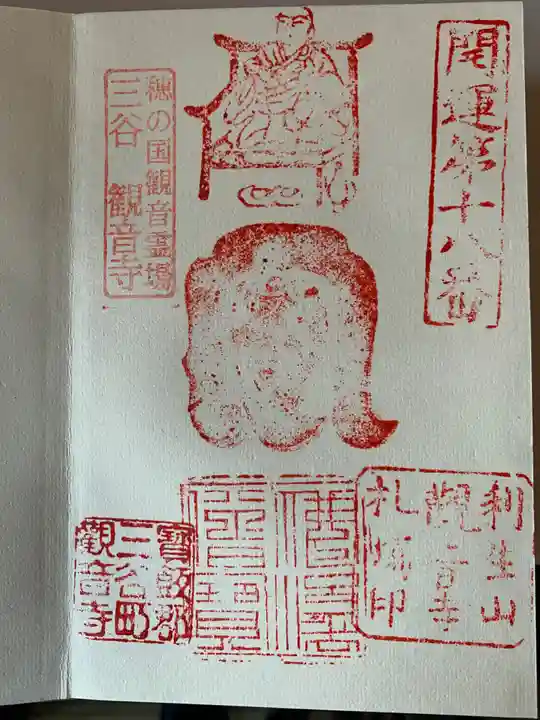 開運第十八番
穂の国観音霊場
三谷 観音寺
利生山
観音寺
札所印
寳飯郡
三谷町
觀音寺